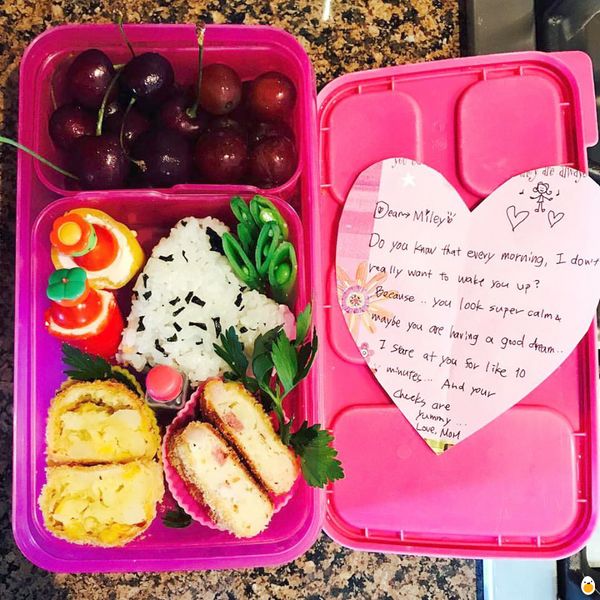 Dear Miley
Do you know that every morning, I don't
really want to wake you up?
Because.. you look super calm &
maybe you are having a good dream...
I stare at you for like 10
minutes... And your
cheeks are
yummy...
Love, Mom